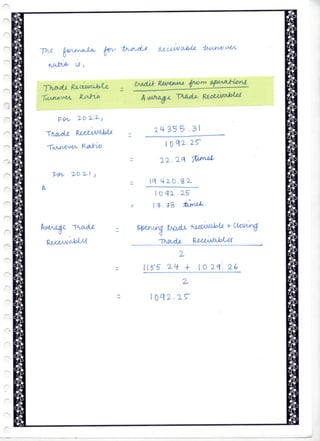 The formula for trade receivable turnover
ratio is,
Trade Receivable Turnover Ratio = Credit Revenue from operations / Average Trade Receivables
For 2022,
Trade Receivable Turnover Ratio = 24355.31 / 1092.25
= 22.29 times
For 2021,
= 19420.82 / 1092.25
= 17.78 times
Average Trade Receivables = Opening trade receivable + Closing Trade Receivables / 2
= 1155.24 + 1029.26 / 2
= 1092.25